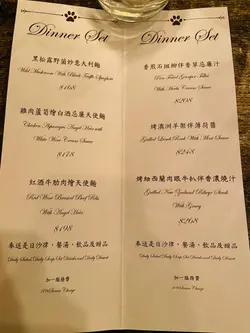 Dinner Set
黑松露野菌炒意大利麵
Wild Mushroom With Black Truffle Spaghetti
$168
雞肉蘆筍燴白酒忌廉天使麵
Chicken Asparagus Angel Hair with
White Wine Cream Sauce
$178
紅酒牛肋肉燴天使麵
Red Wine Braised Beef Ribs
With Angel Hair
$198
奉送是日沙律，餐湯，飲品及甜品
Daily Salad, Daily Soup, Set Drinks and Daily Dessert
加一服務費
10% Service Charge
Dinner Set
香煎石斑柳伴香草忌廉汁
Pan-Fried Grouper Fillet
With Herbs Cream Sauce
$208
烤澳洲羊架伴薄荷醬
Grilled Lamb Rack With Mint Sauce
$248
烤紐西蘭肉眼牛扒伴香濃燒汁
Grilled New Zealand Ribeye Steak
With Gravy
$268
奉送是日沙律，餐湯，飲品及甜品
Daily Salad, Daily Soup, Set Drinks and Daily Dessert
加一服務費
10% Service Charge